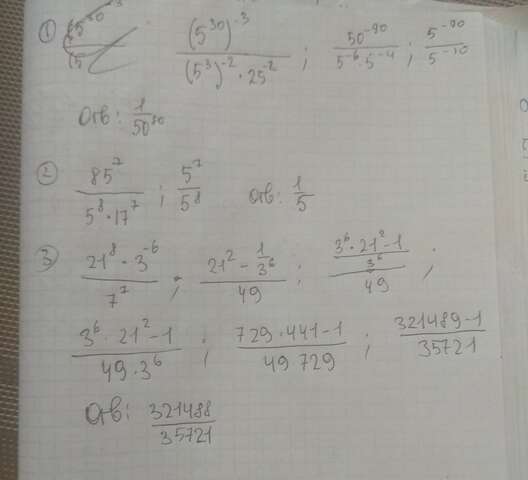 ① (5³⁰)⁻³ / ((5³)⁻² · 25⁻²) ; 50⁻⁹⁰ / (5⁻⁶ · 5⁻⁴) ; 5⁻⁹⁰ / 5⁻¹⁰
Отв: 1 / 50⁸⁰
② 85⁷ / (5⁸ · 17⁷) ; 5⁷ / 5⁸ Отв: 1/5
③ 21⁸ · 3⁻⁶ / 7⁷ ; (21² - 1/3⁶) / 49 ; ((3⁶ · 21² - 1) / 3⁶) / 49 ;
(3⁶ · 21² - 1) / (49 · 3⁶) ; (729 · 441 - 1) / (49 · 729) ; (321489 - 1) / 35721
Отв: 321488 / 35721